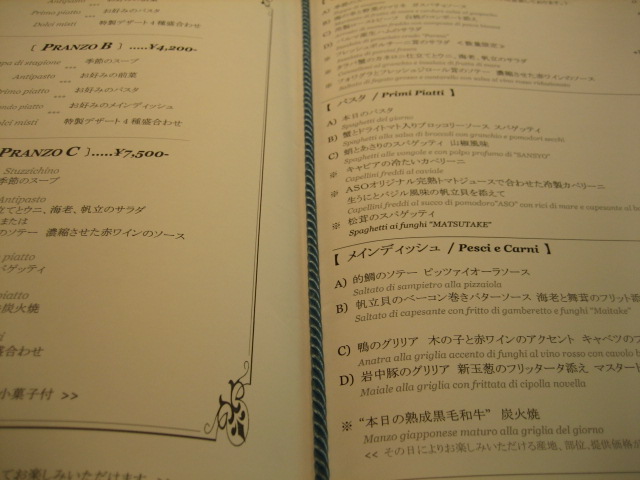 Antipasto
Primo piatto ... お好みのパスタ
Dolci misti 特製デザート4種盛合わせ
[ PRANZO B ] .....¥4,200-
pa di stagione ... 季節のスープ
Antipasto ... お好みの前菜
rimo piatto ... お好みのパスタ
ndo piatto ... お好みのメインディッシュ
olci misti 特製デザート4種盛合わせ
PRANZO C ].....¥7,500-
Stuzzichino
季節のスープ
Antipasto
立てとウニ、海老、帆立のサラダ
または
のソテー 濃縮させた赤ワインのソース
piatto
ゲッティ
piatto
炭火焼
合わせ
小菓子付 >>
てお楽しみいただけます
【 パスタ / Primi Piatti 】
A) 本日のパスタ
Spaghetti del giorno
B) 蟹とドライトマト入りブロッコリーソース スパゲッティ
Spaghetti alla salsa di broccoli con granchio e pomodori secchi
C) 蛤とあさりのスパゲッティ 山椒風味
Spaghetti alle vongole e con polpo profumo di "SANSYO"
※ キャビアの冷たいカペリーニ
Capellini freddi al caviale
※ ASOオリジナル完熟トマトジュースで合わせた冷製カペリーニ
生うにとバジル風味の帆立貝を添えて
Capellini freddi al succo di pomodoro"ASO" con rizi di mare e capesante al b
※ 松茸のスパゲッティ
Spaghetti ai funghi "MATSUTAKE"
【 メインディッシュ / Pesci e Carni 】
A) 的鯛のソテー ピッツァイオーラソース
Saltato di sampietro alla pizzaiola
B) 帆立貝のベーコン巻きバターソース 海老と舞茸のフリット添
Saltato di capesante con fritto di gamberetto e funghi "Maitake"
C) 鴨のグリリア 木の子と赤ワインのアクセント キャベツのフ
Anatra alla griglia accento di funghi al vino rosso con cavolo b
D) 岩中豚のグリリア 新玉葱のフリッタータ添え マスタート
Maiale alla griglia con frittata di cipolla novella
※ "本日の熟成黒毛和牛" 炭火焼
Manzo giapponese maturo alla griglia del giorno
<< その日によりお楽しみいただける産地、部位、提供価格が